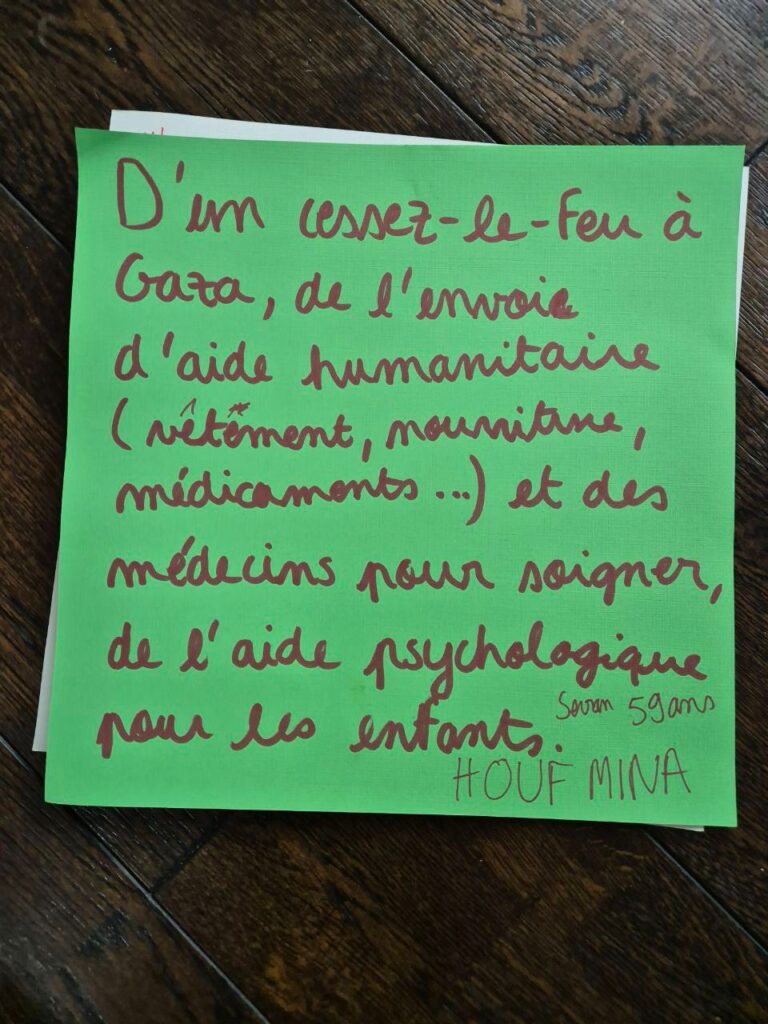 D'un cessez-le-feu à
Gaza, de l'envoie
d'aide humanitaire
(vêtement, nourriture,
médicaments...) et des
médecins pour soigner,
de l'aide psychologique
pour les enfants.
59ans
HOUF MINA